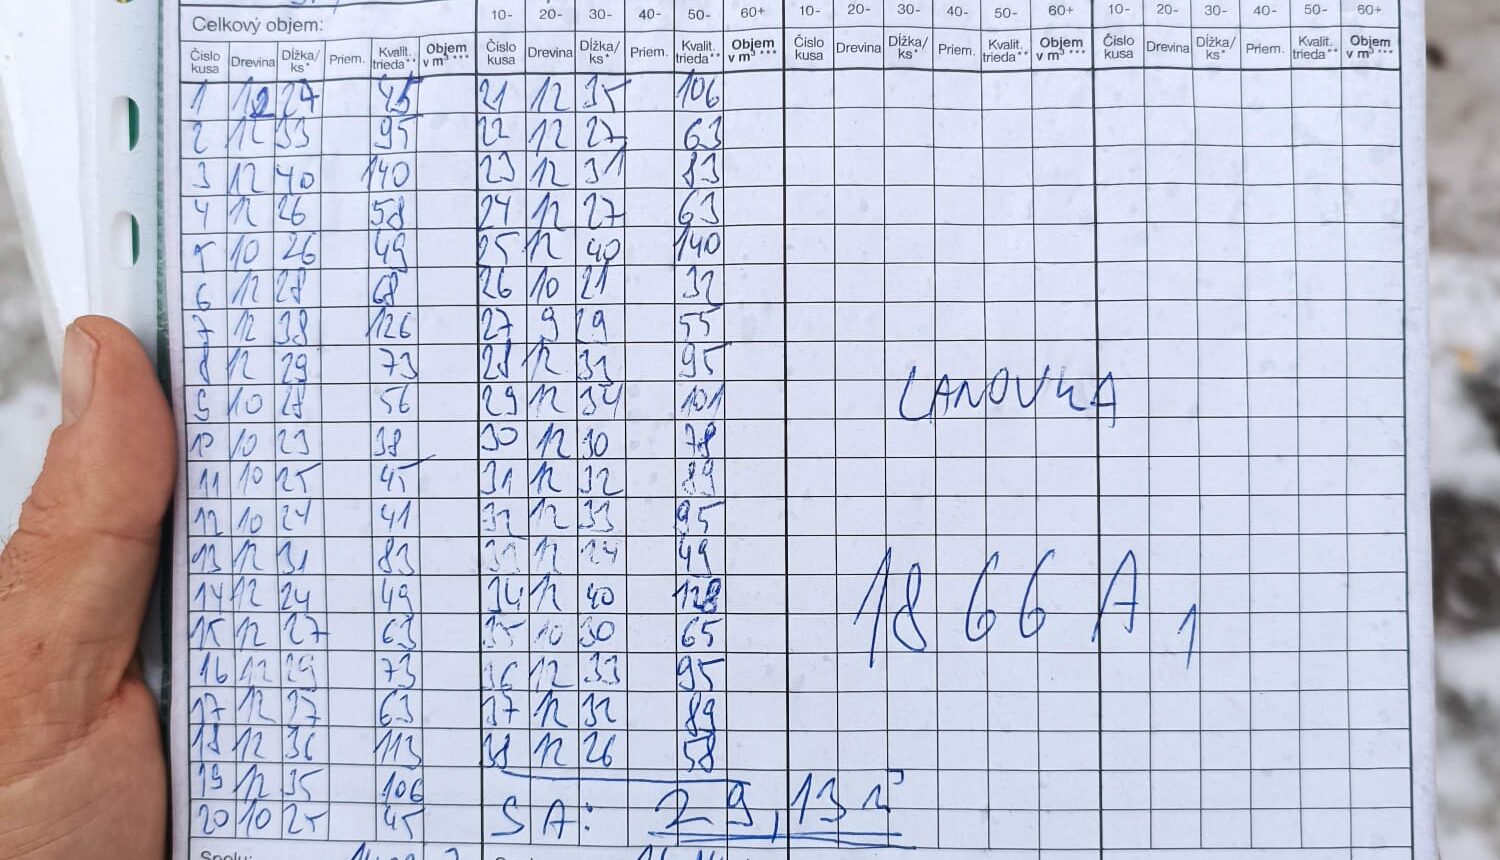 Celkový objem: 10- 20- 30- 40- 50- 60+ 10- 20- 30- 40- 50- 60+ 10- 20- 30- 40- 50- 60+
Číslo kusa Drevina Dĺžka/ks* Priem. Kvalit. trieda** Objem v m³*** Číslo kusa Drevina Dĺžka/ks* Priem. Kvalit. trieda** Objem v m³*** Číslo kusa Drevina Dĺžka/ks* Priem. Kvalit. trieda** Objem v m³*** Číslo kusa Drevina Dĺžka/ks* Priem. Kvalit. trieda** Objem v m³***
1 12 27 45 21 12 35 106
2 12 33 95 22 12 27 63
3 12 40 140 23 12 31 83
4 12 26 58 24 12 27 63
5 10 26 49 25 12 40 140
6 12 28 68 26 10 21 32
7 12 38 126 27 9 29 55
8 12 29 73 28 12 33 95
9 10 28 56 29 12 34 101
LANOVKA
10 10 23 38 30 12 30 78
11 10 25 45 31 12 32 89
12 10 24 41 32 12 33 95
13 12 31 83 33 12 24 49
14 12 24 49 34 12 40 128
15 12 27 63 35 10 30 65
1866 A 1
16 12 29 73 36 12 33 95
17 12 27 63 37 12 32 89
18 12 36 113 38 12 26 58
19 12 35 106
20 10 25 45 SA: 29,13 m³
Spolu: